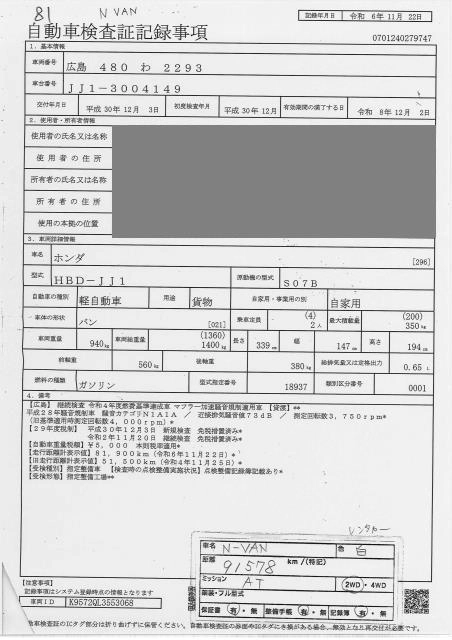 81 N VAN
記録年月日 令和 6年11月 22日
自動車検査証記録事項
0701240279747
1.基本情報
車両番号 広島 480 わ 2293
車台番号 JJ1-3004149
交付年月日 平成 30年12月 3日 初度検査年月 平成 30年12月 有効期間の満了する日 令和 8年12月 2日
2.使用者・所有者情報
使用者の氏名又は名称
使用者の住所
所有者の氏名又は名称
所有者の住所
使用の本拠の位置
3.車両詳細情報
車名 ホンダ [296]
型式 HBD-JJ1 原動機の型式 S07B
自動車の種別 軽自動車 用途 貨物 自家用・事業用の別 自家用
車体の形状 バン [021] 乗車定員 (4) 2人 最大積載量 (200) 350kg
車両重量 940kg 車両総重量 (1360) 1400kg 長さ 339cm 幅 147cm 高さ 194cm
前軸重 560kg 後軸重 380kg 総排気量又は定格出力 0.65 L
燃料の種類 ガソリン 型式指定番号 18937 類別区分番号 0001
4.備考
【広島】 継続検査 令和4年度燃費基準達成車 マフラー加速騒音規制適用車 【貸渡】**
平成28年騒音規制車 騒音カテゴリN1A1A / 近接排気騒音値73dB / 測定回転数3,750rpm*
(旧基準適用時測定回転数4,000rpm)*
【29年度税制】 平成30年12月3日 新規検査 免税措置済み*
令和2年11月20日 継続検査 免税措置済み*
【自動車重量税額】¥5,000 本則税率適用*
【走行距離計表示値】81,900km(令和6年11月22日)*
【旧走行距離計表示値】51,500km(令和4年11月25日)*
【受検種別】指定整備車 【検査時の点検整備実施状況】点検整備記録簿記載あり*
【受検形態】指定整備工場**
レンタカー
車名 N-VAN 色 白
距離 91578 km/(特記)
ミッション AT 2WD・4WD
架装・フル型式
保証書 有・無 整備手帳 有・無 記録簿 有・無
【注意事項】
記載事項はシステム登録時点の情報となります
車両ID K95720L3553068
自動車検査証のICタグ部分は折り曲げずに保管ください。自動車検査証の券面やICタグにき損がある場合、無効となり再交付が必要です。